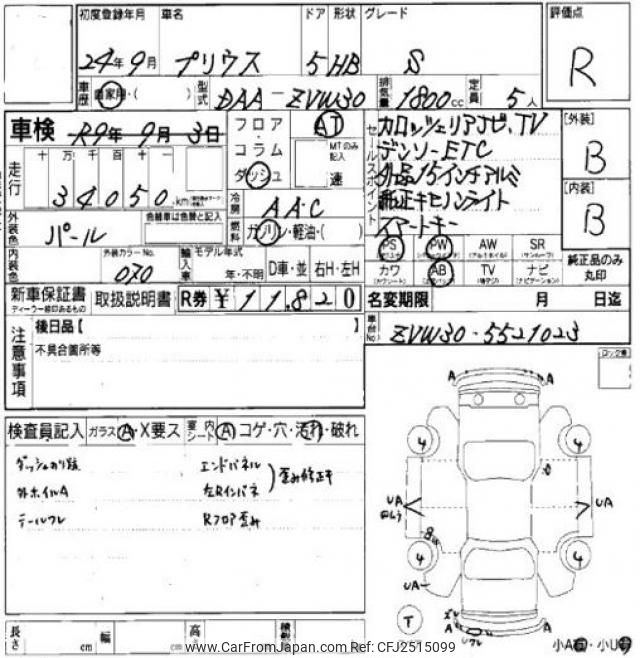 初度登録年月 車名 ドア 形状 グレード 評価点
24年 9月 プリウス 5 HB S R
車歴 自家用・( ) 型式 DAA-ZVW30 排気量 1800cc 定員 5人
車検 R9年 9月 3日 フロア・コラム ダッシュ AT MTのみ記入 速
セールスポイント
カロッツェリアナビ、TV
デンソーETC
外品15インチアルミ
純正キセノンライト
スマートキー
[外装] B
[内装] B
純正品のみ丸印
走行 十 万 千 百 十 一
34050 km
冷房 AAC
外装色 パール 色替車は色替と記入 燃料 ガソリン・軽油・( )
内装色 外装カラーNo. 070 輸入車 モデル年式 年・不明 D車・並 右H・左H
PS PW AW SR
カワ AB TV ナビ
新車保証書 取扱説明書 R券 ¥11,820 名変期限 月 日迄
ディーラー印あるもの
車台No. ZVW30-5521023
注意事項 後日品【 】
不具合箇所等
ロック車
検査員記入 ガラス A・X要ス 室内シート A コゲ・穴・汚れ・破れ
ダッシュのり跡 エンドパネル
外ホイルA 左Rインパネ 歪み修正キ
テールワレ Rフロア歪み
A A
4 4
UA UA
4 4
UA
T
A ワレ A
小A・小U
長さ cm 幅 cm 高さ
www.CarFromJapan.com Ref: CFJ2515099